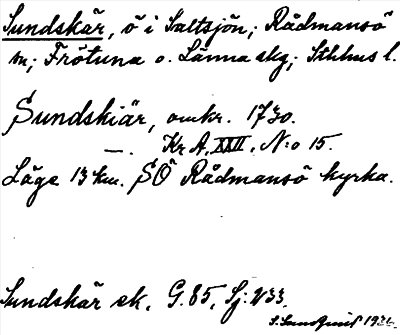 Sundskär, ö i Saltsjön; Rådmansö
sn; Frötuna o. Länna skg; Sthlms l.
Sundskiär, omkr. 1730.
—. Kr A. XXII. N:o 15.
Läge 13 km. SÖ Rådmansö kyrka.
Sundskär ek. G. 85, Sj: 233.
S. Landquist